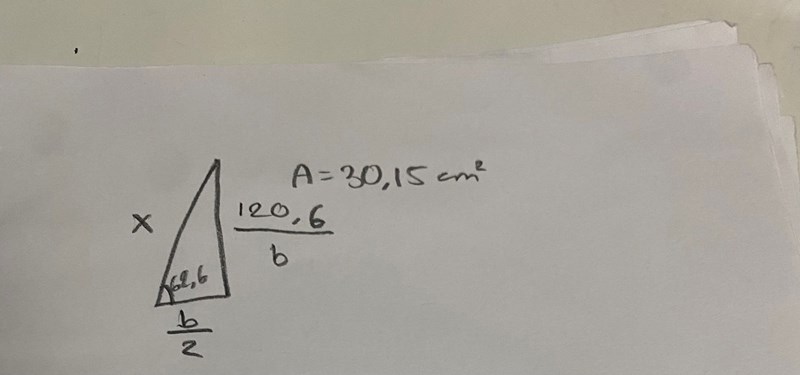 A = 30,15 cm²
x
120,6
b
62,6
b
2